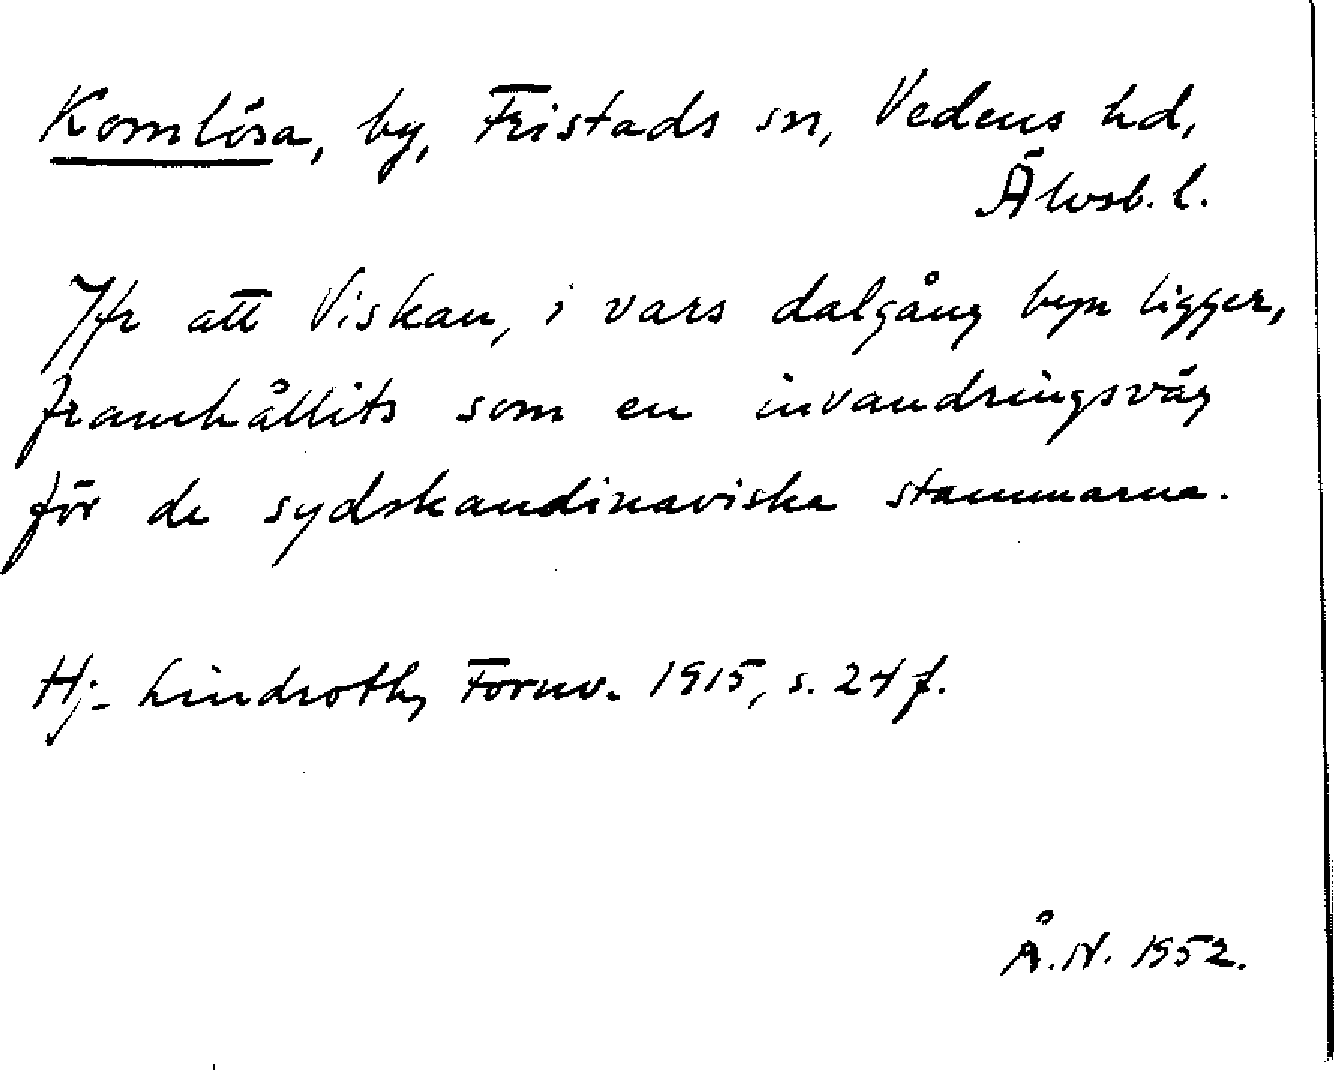 Kornlösa, by, Fristads sn, Vedens hd,
Älvsb. l.
Jfr att Viskan, i vars dalgång byn ligger,
framhållits som en invandringsväg
för de sydskandinaviska stammarna.
Hj. Lindroth, Fornv. 1915, s. 24 f.
Å.N. 1952.